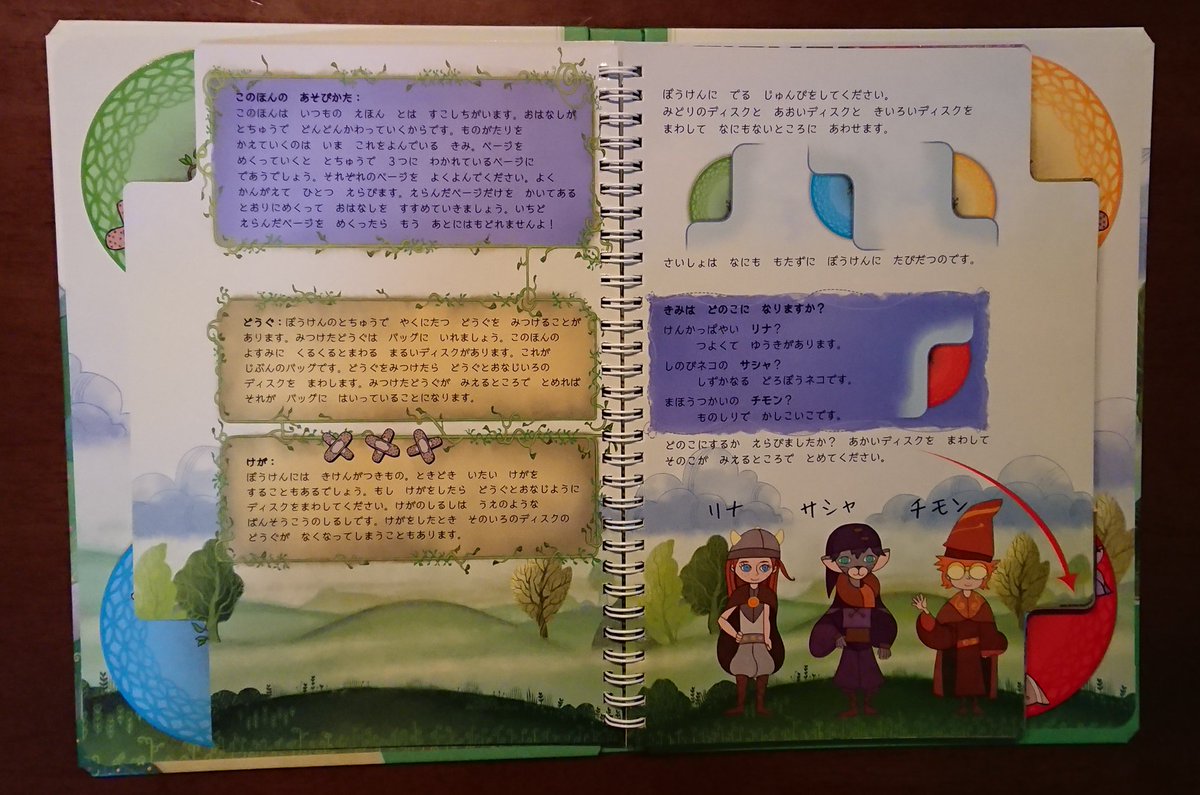 このほんの　あそびかた：
このほんは　いつもの　えほん　とは　すこしちがいます。おはなしが
とちゅうで　どんどんかわっていくからです。ものがたりを
かえていくのは　いま　これをよんでいる　きみ。ページを
めくっていくと　とちゅうで　３つに　わかれているページに
であうでしょう。それぞれのページを　よくよんでください。よく
かんがえて　ひとつ　えらびます。えらんだページだけを　かいてある
とおりにめくって　おはなしを　すすめていきましょう。いちど
えらんだページを　めくったら　もう　あとにはもどれませんよ！
どうぐ：ぼうけんのとちゅうで　やくにたつ　どうぐを　みつけることが
あります。みつけたどうぐは　バッグに　いれましょう。このほんの
よすみに　くるくるとまわる　まるいディスクがあります。これが
じぶんのバッグです。どうぐをみつけたら　どうぐとおなじいろの
ディスクを　まわします。みつけたどうぐが　みえるところで　とめれば
それが　バッグに　はいっていることになります。
けが：
ぼうけんには　きけんがつきもの。ときどき　いたい　けがを
することもあるでしょう。もし　けがをしたら　どうぐとおなじように
ディスクをまわしてください。けがのしるしは　うえのような
ばんそうこうのしるしです。けがをしたとき　そのいろのディスクの
どうぐが　なくなってしまうこともあります。
ぼうけんに　でる　じゅんびをしてください。
みどりのディスクと　あおいディスクと　きいろいディスクを
まわして　なにもないところに　あわせます。
さいしょは　なにも　もたずに　ぼうけんに　たびだつのです。
きみは　どのこに　なりますか？
けんかっぱやい　リナ？
つよくて　ゆうきがあります。
しのびネコの　サシャ？
しずかなる　どろぼうネコです。
まほうつかいの　チモン？
ものしりで　かしこいこです。
どのこにするか　えらびましたか？　あかいディスクを　まわして
そのこが　みえるところで　とめてください。
リナ　サシャ　チモン